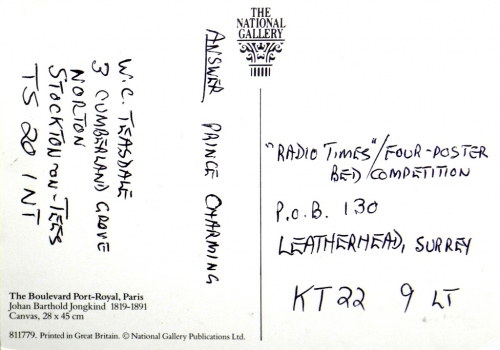 THE
NATIONAL
GALLERY
W. C. TEASDALE
3 CUMBERLAND GROVE
NORTON
STOCKTON ON-TEES
TS 20 1NT
ANSWER PRINCE CHARMING
"RADIO TIMES"/FOUR-POSTER
BED/COMPETITION
P.O.B. 130
LEATHERHEAD, SURREY
KT22 9 LT
The Boulevard Port-Royal, Paris
Johan Barthold Jongkind 1819-1891
Canvas, 28 x 45 cm
811779. Printed in Great Britain. © National Gallery Publications Ltd.